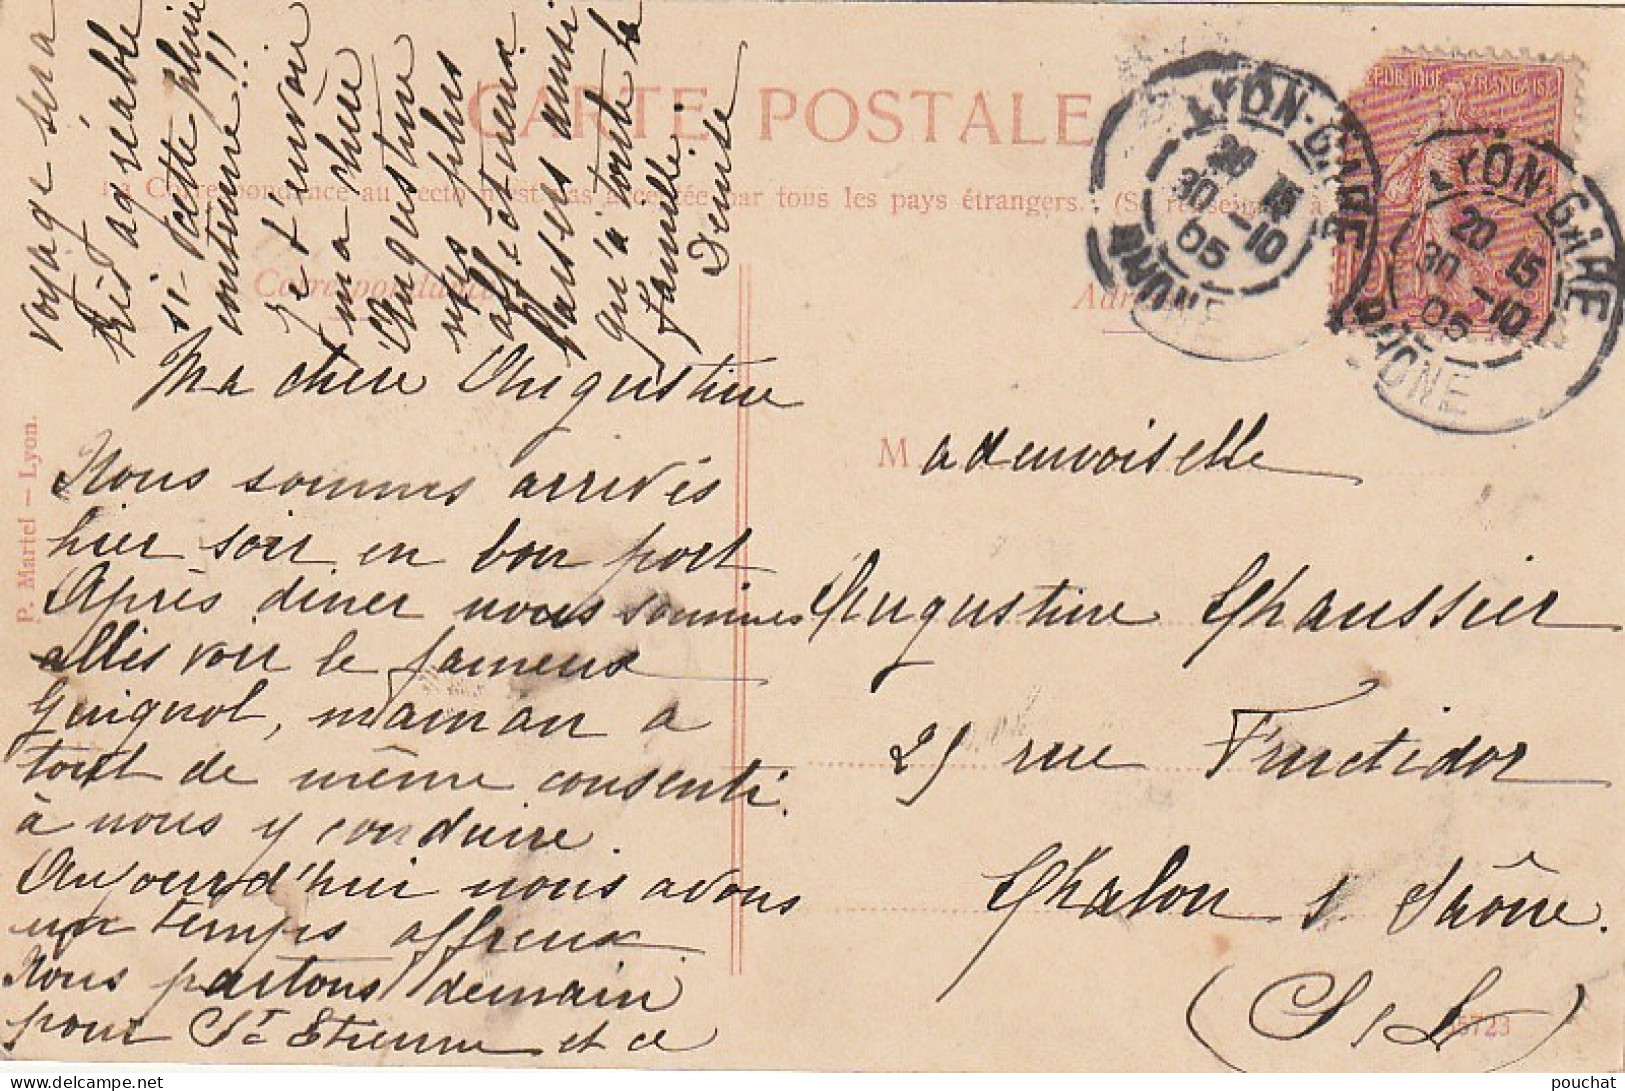 CARTE POSTALE
La Correspondance au recto n'est pas acceptée par tous les pays étrangers. (Se renseigner à
Correspondance
Adresse
P. Martel – Lyon.
REPUBLIQUE FRANÇAISE
LYON-GARE
20 15
30 -10
05
RHONE
LYON-GARE
20 15
30 -10
05
RHONE
Ma chère Augustine
Nous sommes arrivés
hier soir en bon port
Après diner nous sommes
allés voir le fameux
Guignol, maman a
tout de même consenti
à nous y conduire.
Aujourd'hui nous avons
un temps affreux
Nous partons demain
pour St Etienne et ce
voyage sera
très agréable
si cette pluie
continue!!
Je t'envoie
ma chère
Augustine
mes plus
affectueux
baisers ainsi
qu'à toute la
famille
Denise
Mademoiselle
Augustine Chaussier
25 rue Fructidor
Chalon s. Saône.
(S/L)
pouchat